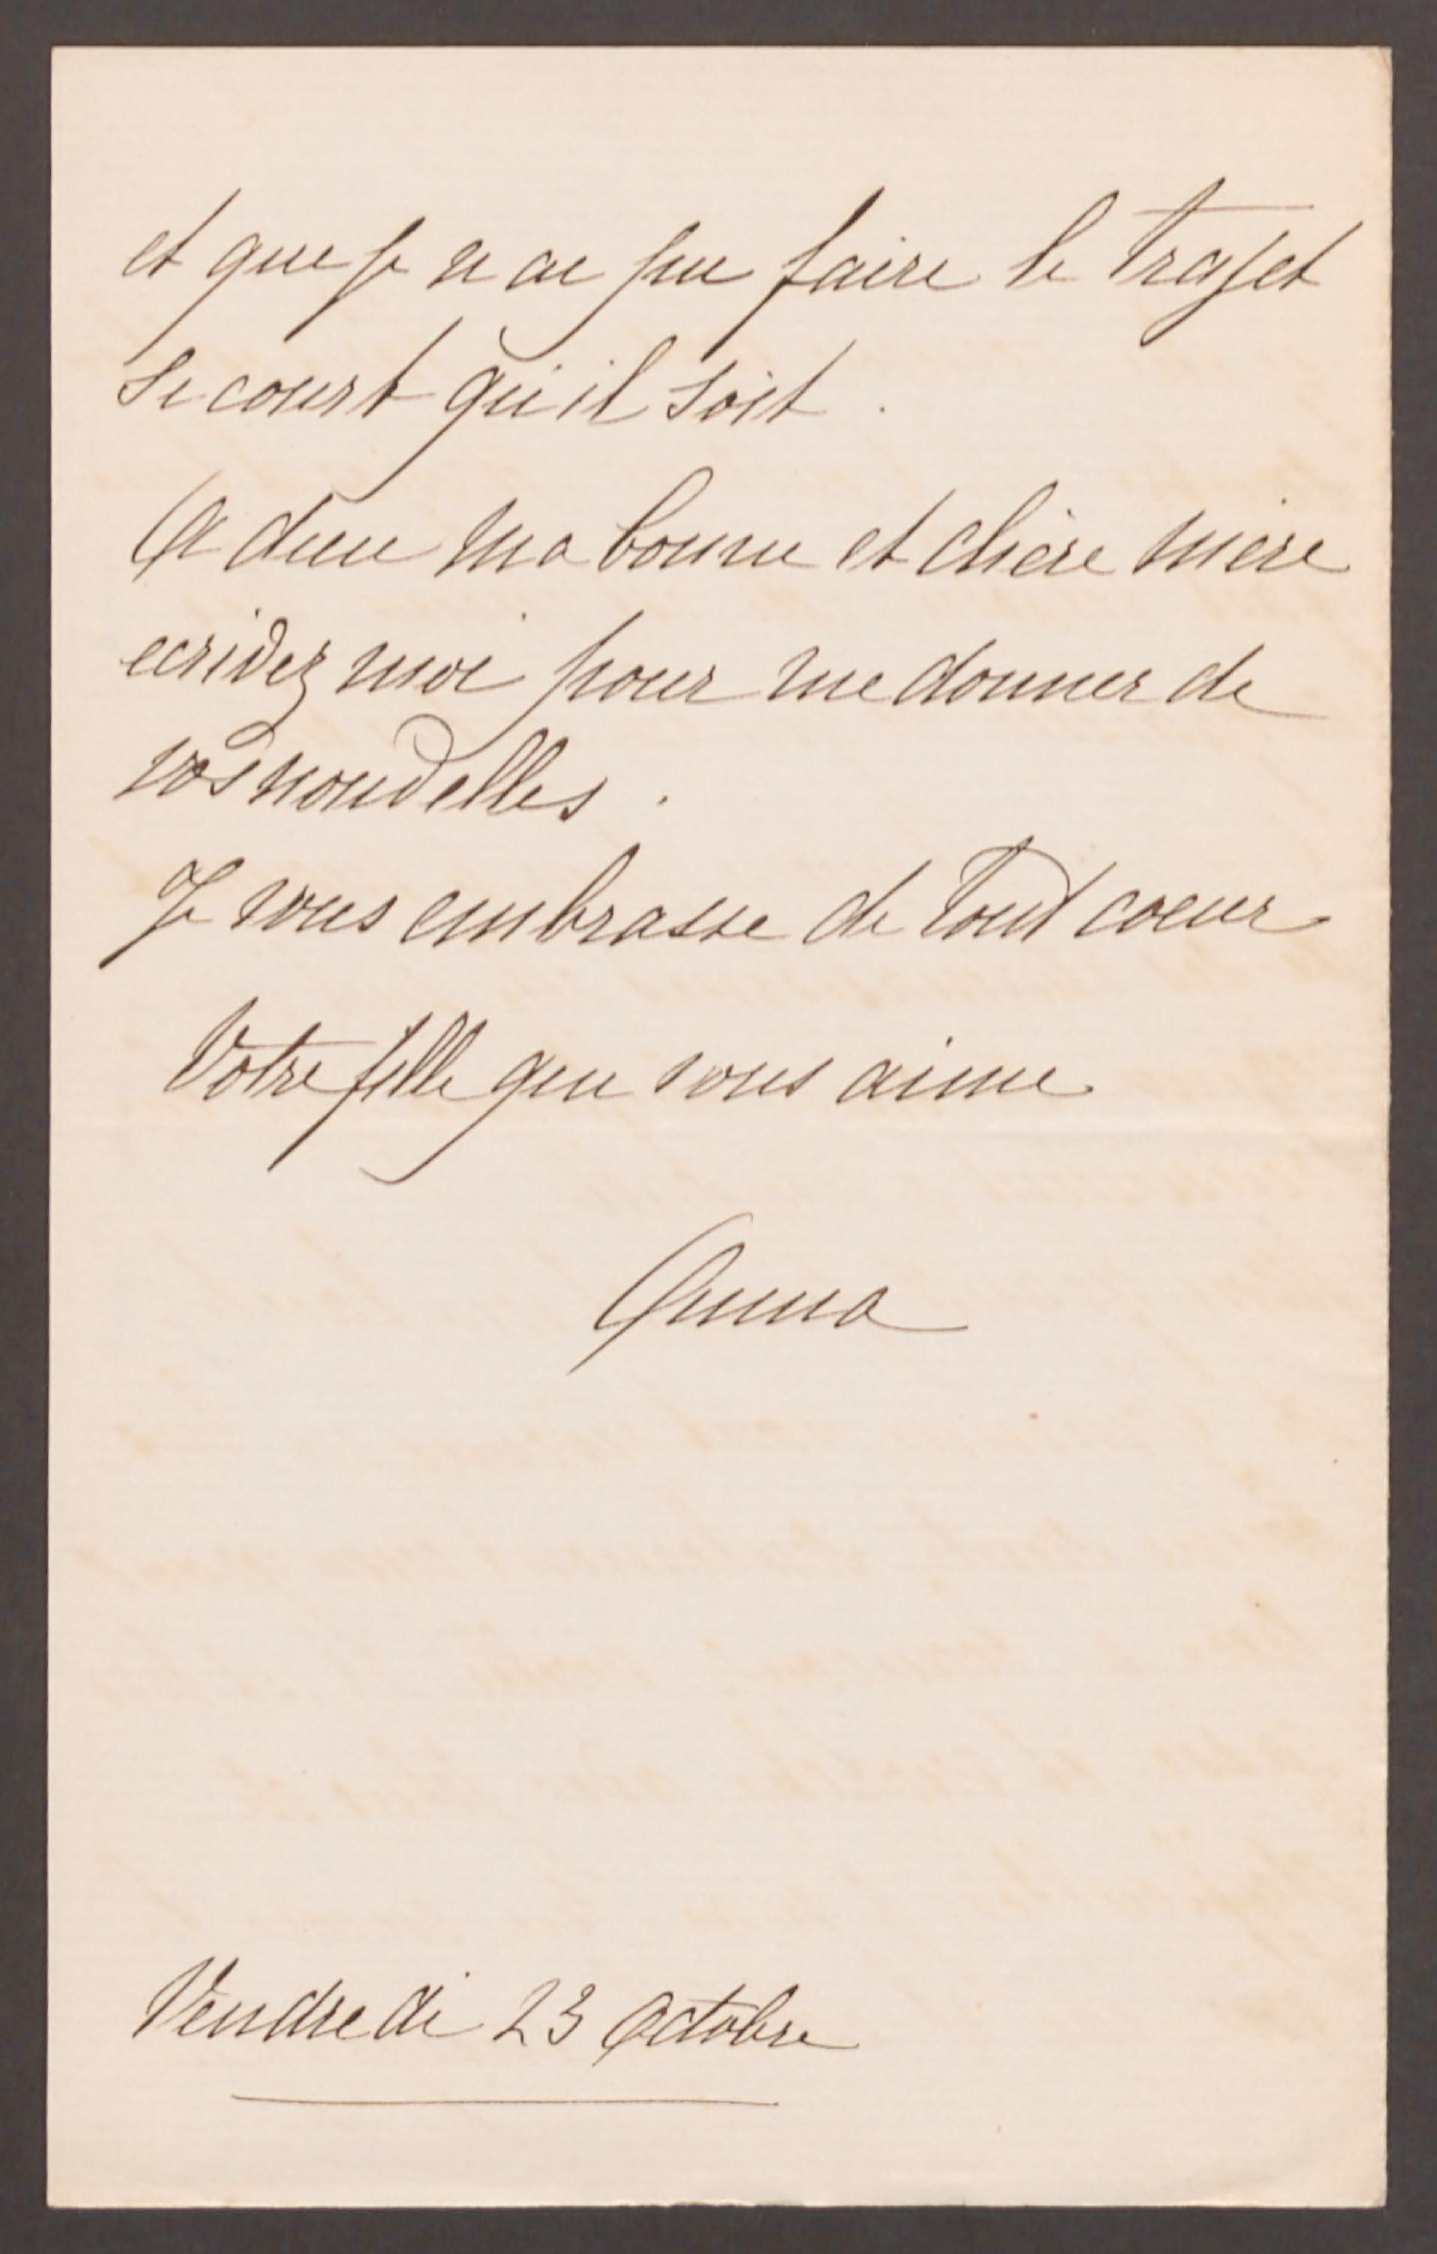 et que je n ai pu faire le trajet
si court qu'il soit.
A dieu ma bonne et chère mère
ecrivez moi pour me donner de
vos nouvelles.
Je vous embrasse de tout coeur
Votre fille qui vous aime
Anna
Vendredi 23 Octobre